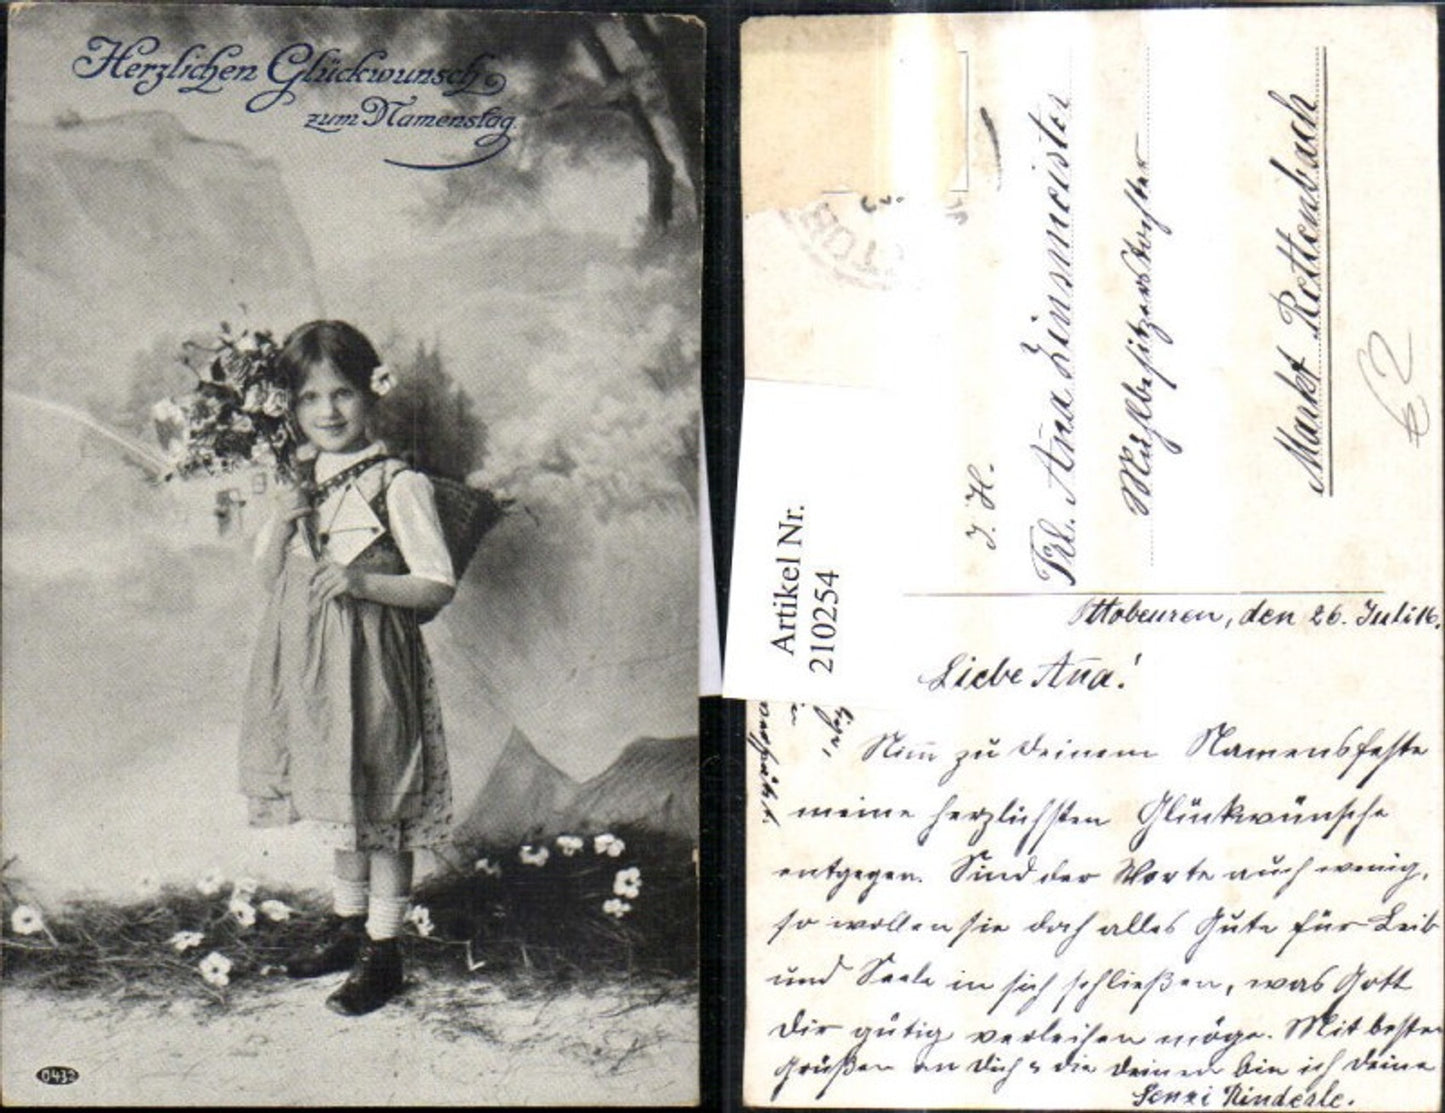 Herzlichen Glückwunsch
zum Namenstag
0432
Artikel Nr.
210254
J. H.
Frl. Anna Zinsmeister
Mühlbesitzerstochter
Markt Rettenbach
62
Ottobeuren, den 26. Juli 16.
Liebe Anna!
Nimm zu Deinem Namensfeste
meine herzlichsten Glückwünsche
entgegen. Sind der Worte auch wenig,
so wollen sie doch alles Gute für Leib
und Seele in sich schließen, was Gott
Dir gütig verleihen möge. Mit besten
Grüßen an Dich u. die Deinen bin ich Deine
Senzi Rinderle.